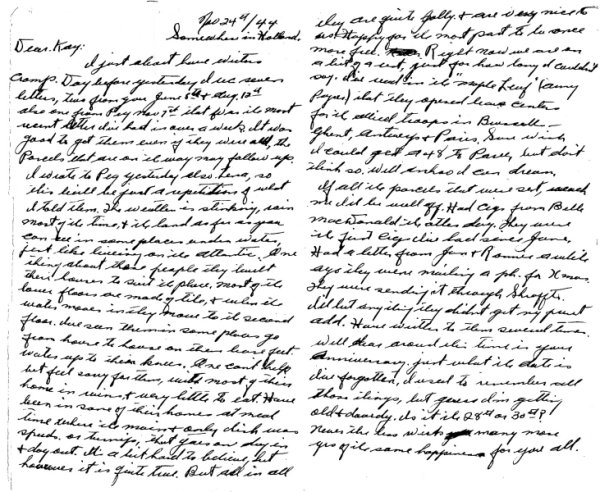 Nov 24th/44
Somewhere in Holland.
Dear Kay:
I just about have writers
cramp. Day before yesterday I rec seven
letters, two from you June 6th & Aug. 12th
also one from Peg Nov 7th that was the most
recent letter I've had in over a week. It was
good to get them even if they were old, the
Parcels that are on the way may follow up.
I wrote to Peg yesterday also Lena, so
this will be just a repetition of what
I told them. The weather is stinking, rain
most of the time, & the land as far as you
can see in some places under water,
just like living on the Atlantic. One
thing about these people they built
their houses to suit the place, most of the
lower floors are made of tile, & when the
water moves in they move to the second
floor. I've seen them in some places go
from house to house on their bare feet
water up to their knees. One can't help
but feel sorry for them, with most of their
homes in ruins, & very little to eat. Have
been in some of their homes at meal
time where the main & only dish was
spuds, or turnips. That goes on day in
& day out. It's a bit hard to believe, but
however it is quite true. But all in all
they are quite jolly, & are very nice to
us. Happy for the most part to be once
more free. Right now we are on
a bit of a rest, just for how long I couldn't
say. I've read in the "Maple Leaf" (army
Paper) that they opened leave centers
for the allied troops in Brussels -
Ghent, Antwerp & Paris. Sure wish
I could get a 48 to Paree, but don't
think so. Well anhow I can dream.
If all the parcels that were sent, reach
me I'll be well off. Had Cigs from Belle
MacDonald the other day. They were
the first Cigs I've had since June.
Had a letter from Jean & Ronnie a while
ago they were mailing a pk. for Xmas.
They were sending it through Shreffs.
I'll bet anything they didn't get my present
add. Have written to them several times.
Well Dear around this time is your
Anniversary, just what the date is
I've forgotten, I used to remember all
those things, but guess I'm getting
old & dowdy. Is it the 28th or 30th?
Never the less wish you many more
yrs of the same happiness for you all.